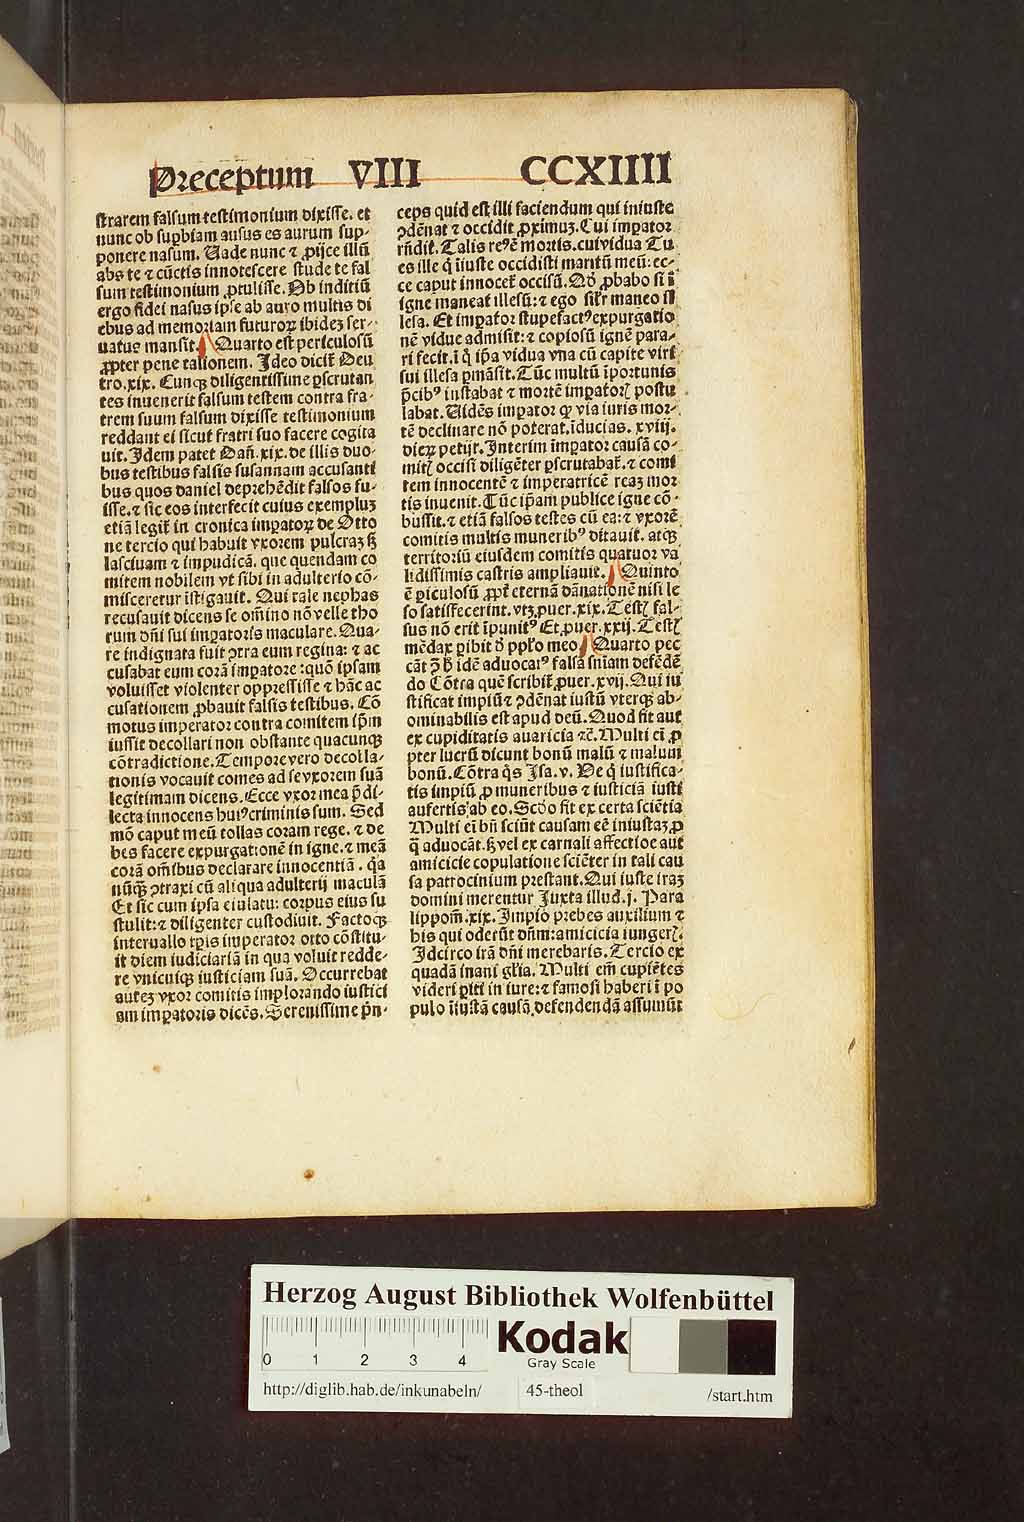 Preceptum VIII CCXIIII
strarem falsum testimonium dixisse. et
nunc ob suꝑbiam ausus es aurum sup-
ponere nasum. Uade nunc ⁊ ꝓijce illũ
abs te ⁊ cũctis innotescere stude te fal
sum testimonium ꝓtulisse. Ob inditiũ
ergo fidei nasus ipse ab auro multis di
ebus ad memoriam futuroꝝ ibidez ser-
uatus mansit. Quarto est periculosũ
ꝓpter pene talionem. Ideo dicit᷑ Deu
tro.xix. Cunqꝫ diligentissime ꝑscrutan
tes inuenerit falsum testem contra fra-
trem suum falsum dixisse testimonium
reddant ei sicut fratri suo facere cogita
uit. Idem patet Dañ.xix. de illis duo-
bus testibus falsis susannam accusanti
bus quos daniel deprehẽdit falsos fu-
isse. ⁊ sic eos interfecit cuius exempluz
etiã legit᷑ in cronica imꝑatoꝝ de Otto
ne tercio qui habuit vxorem pulcraz sꝫ
lasciuam ⁊ impudicã. que quendam co
mitem nobilem vt sibi in adulterio cõ-
misceretur ĩstigauit. Qui tale nephas
recusauit dicens se om̃ino nõ velle tho
rum dñi sui imꝑatoris maculare. Qua-
re indignata fuit ↄtra eum regina: ⁊ ac
cusabat eum corã imꝑatore: quõ ipsam
voluisset violenter oppressisse ⁊ hãc ac
cusationem ꝓbauit falsis testibus. Cõ
motus imperator contra comitem ip̃m
iussit decollari non obstante quacunqꝫ
cõtradictione. Tempore vero decolla-
tionis vocauit comes ad se vxorem suã
legitimam dicens. Ecce vxor mea p̃di-
lecta innocens huiꝰ criminis sum. Sed
mõ caput meũ tollas coram rege. ⁊ de
bes facere expurgationẽ in igne. ⁊ meã
corã om̃ibus declarare innocentiã. q̃a
nũqꝫ ↄtraxi cũ aliqua adulterij maculã
Et sic cum ipsa eiulatu: corpus eius su
stulit: ⁊ diligenter custodiuit. Factoqꝫ
interuallo tp̃is imperator otto cõstitu-
it diem iudiciariã in qua voluit redde-
re vnicuiqꝫ iusticiam suã. Occurrebat
autez vxor comitis implorando iustici
am imꝑatoris dicẽs. Serenissime p̃n-
ceps quid est illi faciendum qui iniuste
ↄdẽnat ⁊ occidit ꝓximuz. Cui imꝑator
rñdit. Talis reꝰ ẽ mortis. cui vidua Tu
es ille q̇ ĩiuste occidisti maritũ meũ: ec-
ce caput innocẽt᷑ occisũ. Qđ ꝓbabo si ĩ
igne maneat illesũ: ⁊ ego sil᷑r maneo il
lesa. Et imꝑator stupefactꝰ expurgatio
nẽ vidue admisit: ⁊ copiosũ ignẽ para-
ri fecit. ĩ q̇ ip̃a vidua vna cũ capite viri
sui illesa ꝑmãsit. Tũc multũ ĩportunis
p̃cibꝰ instabat ⁊ mortẽ imꝑatoꝝ postu
labat. Uidẽs imꝑator ꝙ via iuris mor-
tẽ declinare nõ poterat. ĩducias. xviij.
dieꝝ petijt. Interim imꝑator causã co-
mitꝭ occisi diligẽter ꝑscrutabat᷑. ⁊ comi
tem innocentẽ ⁊ imperatricẽ reaz mor
tis inuenit. Tũc ip̃am publice igne cõ-
bussit. ⁊ etiã falsos testes cũ ea: ⁊ vxorẽ
comitis multis muneribꝰ ditauit. atqꝫ
territoriũ eiusdem comitis quatuor va
lidissimis castris ampliauit. Quinto
ẽ ꝑiculosũ ꝓpt᷑ eternã dãnationẽ nisi le
so satisfecerint. vtꝫ ꝓuer.xix. Testꝭ fal-
sus nõ erit ĩpunitꝰ Et ꝓuer.xxij. Testꝭ
mẽdax ꝑibit đ pp̃lo meo Quarto pec
cãt idẽ aduocatꝰ falsã sñiam defẽdẽ
do Cõtra quẽ scribit᷑ ꝓuer.xvij. Qui iu
stificat impiũ ⁊ ↄdẽnat iustũ vterqꝫ ab-
ominabilis est apud deũ. Quod fit aut
ex cupiditatis auaricia ⁊c̃. Multi ei̇̃ ꝓ
pter lucrũ dicunt bonũ malũ ⁊ malum
bonũ. Cõtra q̇s Isa.v. Ve q̇ iustifica-
tis impiũ ꝓ muneribus ⁊ iusticiã iusti
aufertis ab eo. Scđo fit ex certa sciẽtia
Multi ei̇̃ bñ sciũt causam eẽ iniustaz ꝓ
q̃ aduocãt. sꝫ vel ex carnali affectioe aut
amicicie copulatione sciẽter in tali cau
sa patrocinium prestant. Qui iuste iraz
domini merentur Juxta illud.j. Para
lippom̃.xix. Impio prebes auxilium ⁊
his qui oderũt dñm: amicicia iungerꝭ.
Idcirco irã dñi merebaris. Tercio ex
quadã inani gl᷑ia. Multi em̃ cupiẽtes
videri ꝑiti in iure: ⁊ famosi haberi ĩ po
pulo ĩiustã causã defendendã assumũt
Herzog August Bibliothek Wolfenbüttel
0 1 2 3 4
Kodak
Gray Scale
http://diglib.hab.de/inkunabeln/ 45-theol /start.htm